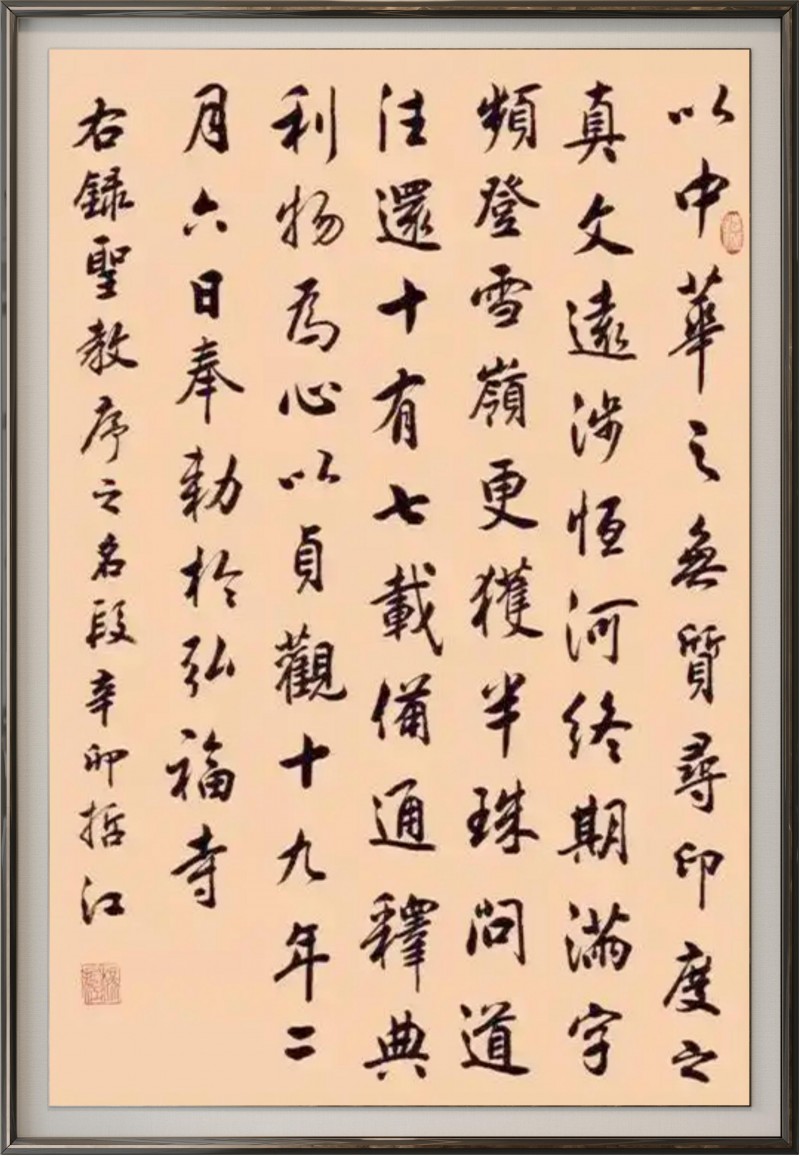 以中華之無質尋印度之
真文遠涉恒河終期滿字
頻登雪嶺更獲半珠問道
往還十有七載備通釋典
利物為心以貞觀十九年二
月六日奉勅於弘福寺
右録聖教序之名段辛卯哲江